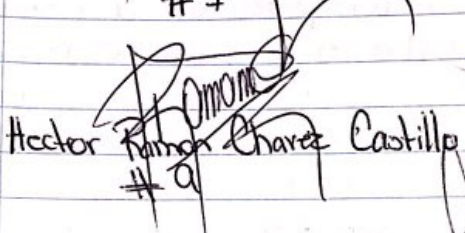 # 7
Ramon
Hector Ramon Chavez Castillo
# 9